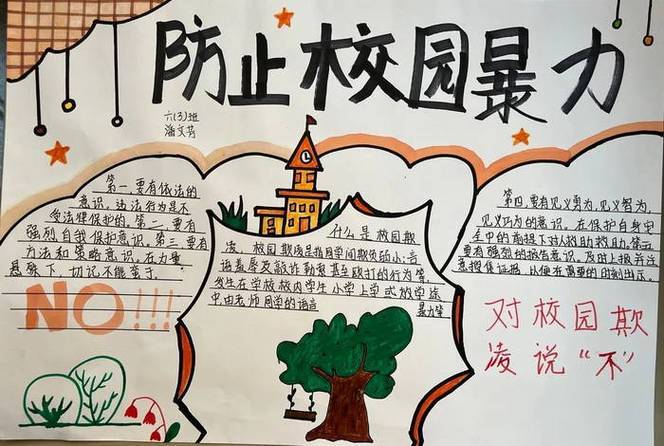 防止校园暴力
六(3)班
潘文芳
第一,要有依法的
意识,违法行为是不
受法律保护的。第二,要有
强烈自我保护意识。第三,要有
方法和策略意识,在力量
悬殊下,切记不能蛮干。
NO!!!
什么是校园欺
凌,校园欺凌是指同学间欺负弱小、言
语羞辱及敲诈勒索甚至殴打的行为等,
发生在学校校内学生小学上学或放学途
中由老师同学的语言
暴力等
第四,要有见义勇为,见义智为,
见义巧为的意识。在保护自身安
全中的前提下对人救助救助。第五
要有强烈的报告意识,及时上报并注
意搜集证据,以便在需要的时刻出示。
对校园欺
凌说“不”